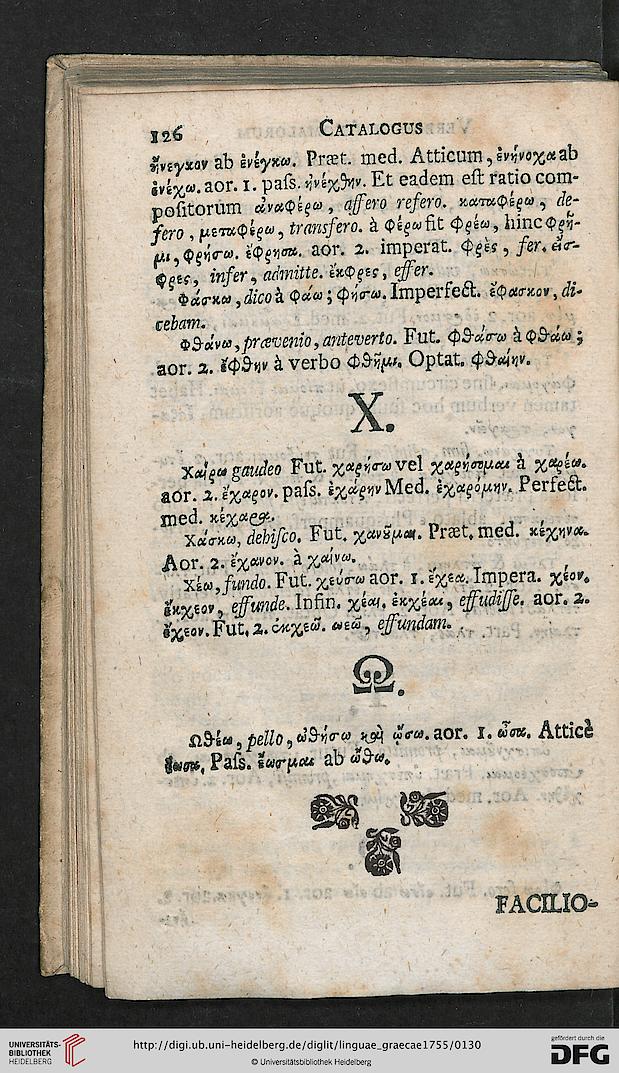 126 CATALOGUS
ἤνεγκον ab ἐνέγκω. Præt. med. Atticum, ἐνήνοχα ab
ἐνέχω. aor. 1. paſs. ἠνέχθην. Et eadem eſt ratio com-
poſitorum ἀναφέρω, affero refero. καταφέρω, de-
fero, μεταφέρω, transfero. à φέρω fit φρέω, hinc φρῆ-
μι, φρήσω. ἔφρησα. aor. 2. imperat. φρὲς, fer. εἴσ-
φρες, infer, admitte. ἔκφρες, effer.
Φάσκω, dico à φάω; φήσω. Imperfect. ἔφασκον, di-
cebam.
Φθάνω, prævenio, anteverto. Fut. φθάσω à φθάω;
aor. 2. ἔφθην à verbo φθῆμι. Optat. φθαίην.
X.
Χαίρω gaudeo Fut. χαρήσω vel χαρήσομαι à χαρέω.
aor. 2. ἔχαρον. paſs. ἐχάρην Med. ἐχαρόμην. Perfect.
med. κέχαρα.
Χάσκω, dehiſco. Fut. χανοῦμαι. Præt. med. κέχηνα.
Aor. 2. ἔχανον. à χαίνω.
Χέω, fundo. Fut. χεύσω aor. 1. ἔχεα. Impera. χέον.
ἔκχεον, effunde. Infin. χέαι, ἐκχέαι, effudiſſe. aor. 2.
ἔχεον. Fut. 2. ἐκχεῶ. effundam.
Ω.
Ωθέω, pello, ὠθήσω καὶ ὤσω. aor. 1. ὦσα. Atticè
ἔωσα, Paſs. ἔωσμαι ab ὤθω.
FACILIO-
UNIVERSITÄTS-
BIBLIOTHEK
HEIDELBERG
http://digi.ub.uni-heidelberg.de/diglit/linguae_graecae1755/0130
© Universitätsbibliothek Heidelberg
gefördert durch die
DFG